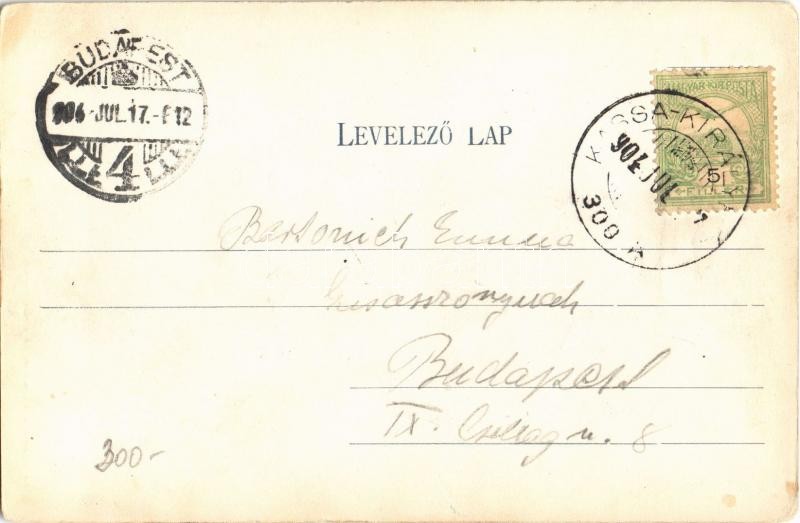 BUDAPEST
904 JUL.17.-F12
4
LEVELEZŐ LAP
MAGYAR KIR. POSTA
5
KASSA-KIRÁ
904 JUL
300
Emma
kisasszonynak
Budapest
IX. Csillag u. 8
300-